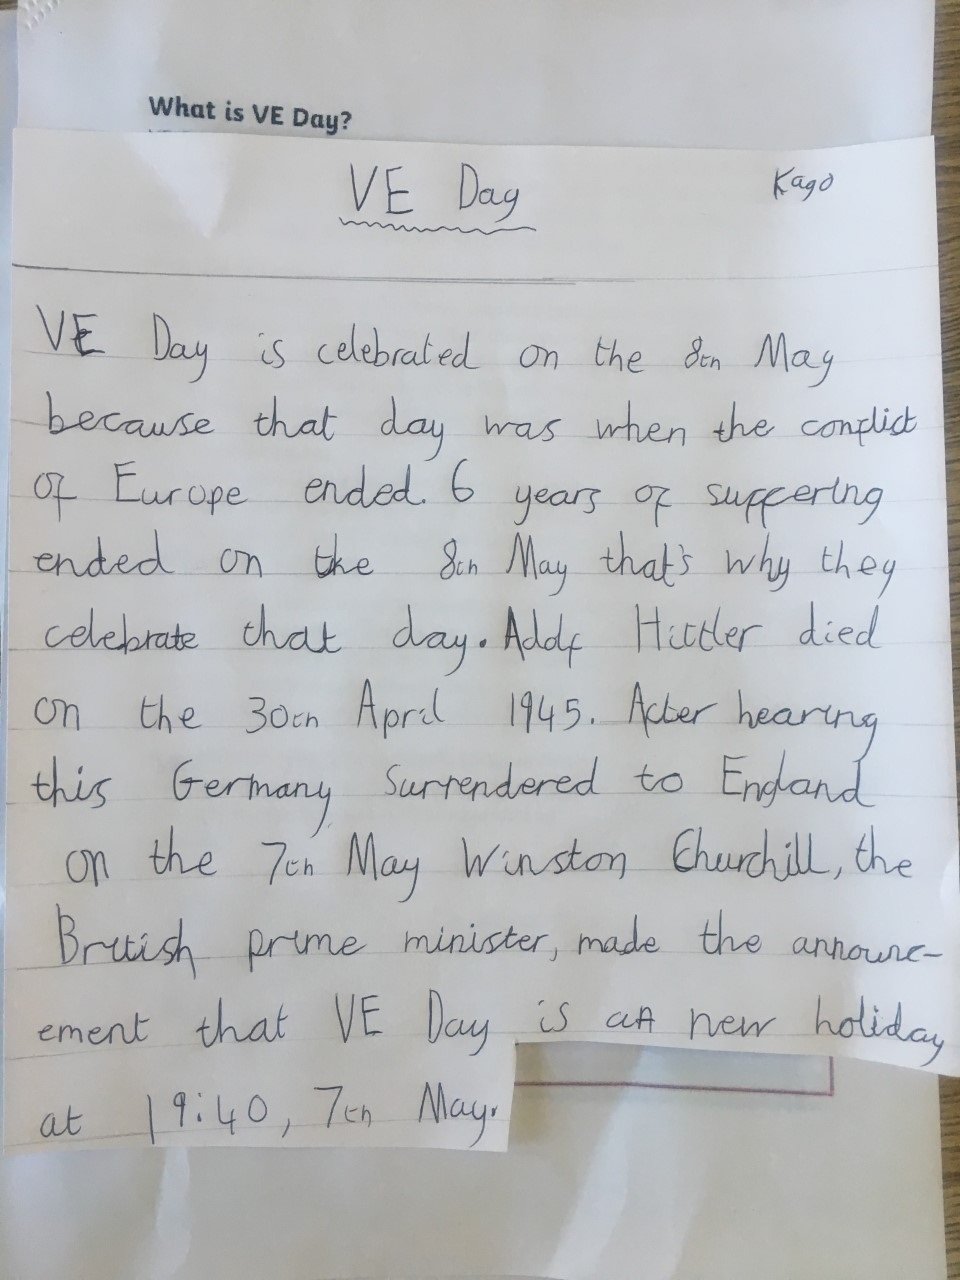 What is VE Day?
VE Day
Kago
VE Day is celebrated on the 8th May
because that day was when the conflict
of Europe ended. 6 years of suffering
ended on the 8th May that's why they
celebrate that day. Addf Hittler died
on the 30th April 1945. After hearing
this Germany Surrendered to England
on the 7th May Winston Churchill, the
British prime minister, made the announc-
ement that VE Day is a new holiday
at 19:40, 7th May.